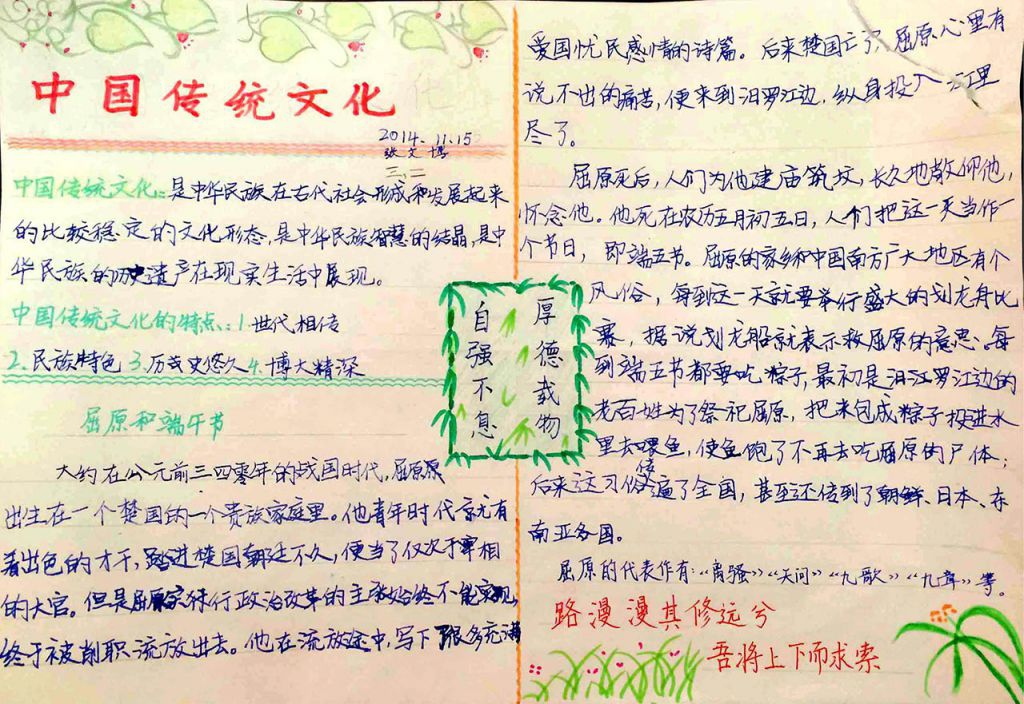 中国传统文化
2014.11.15
张文博
三、二
中国传统文化：是中华民族在古代社会形成和发展起来
的比较稳定的文化形态，是中华民族智慧的结晶，是中
华民族的历史遗产在现实生活中展现。
中国传统文化的特点：1.世代相传
2.民族特色 3.历史悠久 4.博大精深
屈原和端午节
大约在公元前三四零年的战国时代，屈原
出生在一个楚国的一个贵族家庭里。他青年时代就有
着出色的才干，踏进楚国朝廷不久，便当了仅次于宰相
的大官。但是屈原推行政治改革的主张始终不能实现，
终于被削职流放出去。他在流放途中，写下了很多充满
自强不息
厚德载物
爱国忧民感情的诗篇。后来楚国亡了，屈原心里有
说不出的痛苦，便来到汨罗江边，纵身投入江里
尽了。
屈原死后，人们为他建庙筑坟，长久地敬仰他，
怀念他。他死在农历五月初五日，人们把这一天当作一
个节日，即端五节。屈原的家乡和中国南方广大地区有个
风俗，每到这一天就要举行盛大的划龙舟比
赛，据说划龙船就表示救屈原的意思。每
到端五节都要吃粽子，最初是汨江罗江边的
老百姓为了祭祀屈原，把米包成粽子投进水
里去喂鱼，使鱼饱了不再去吃屈原的尸体；
后来这习俗传遍了全国，甚至还传到了朝鲜、日本、东
南亚各国。
屈原的代表作有：“离骚”“天问”“九歌”“九章”等。
路漫漫其修远兮
吾将上下而求索